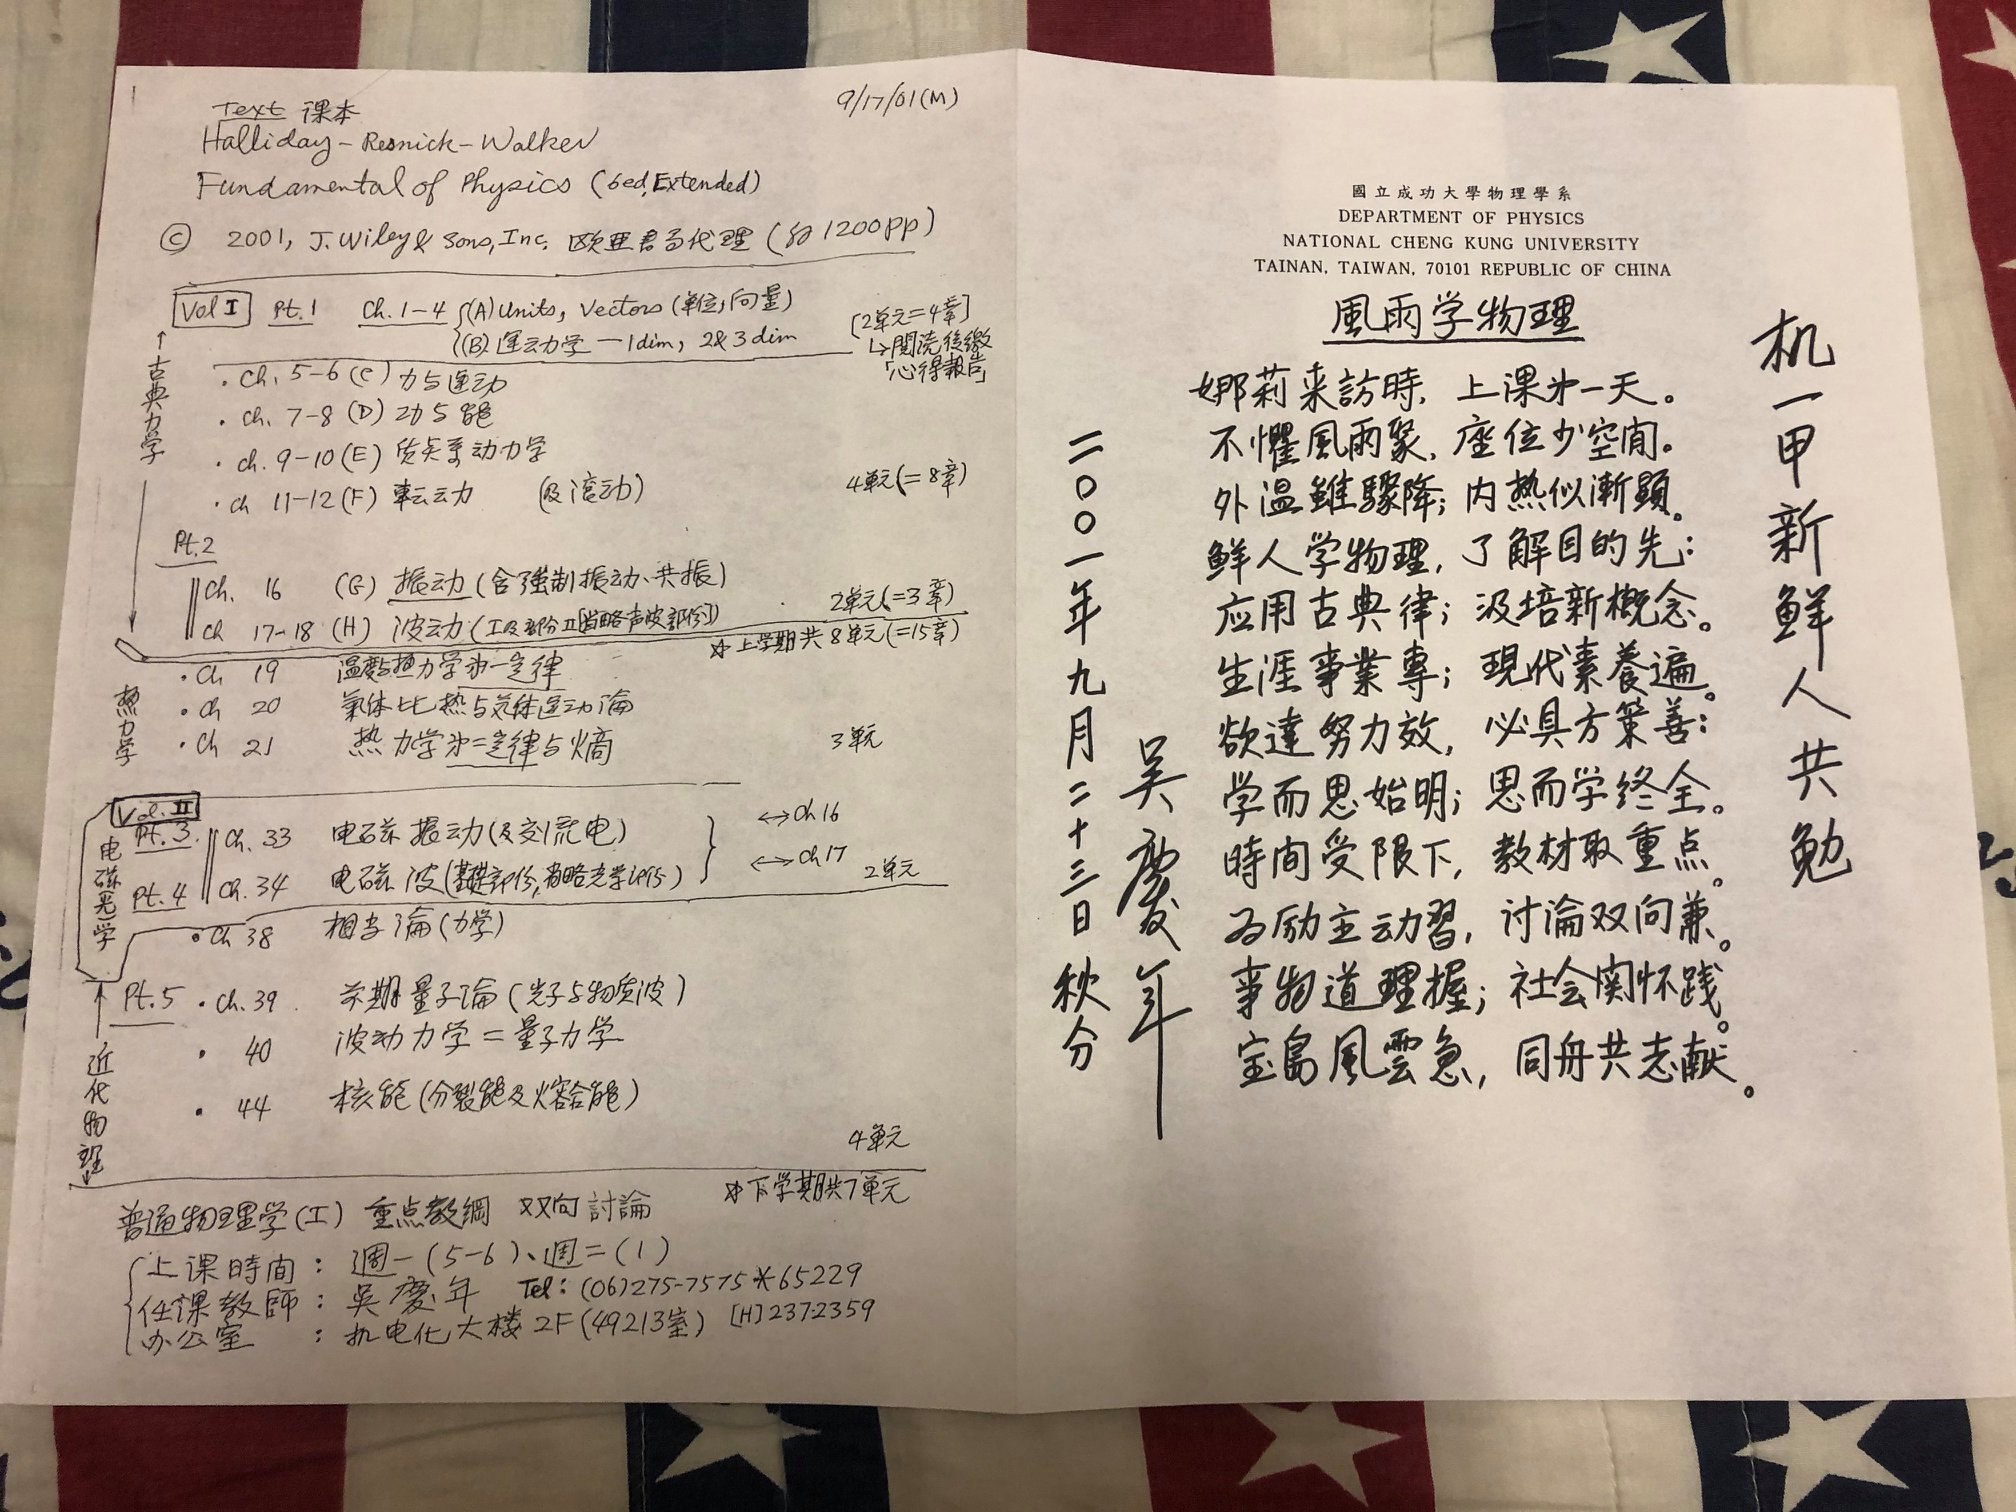 Text 课本
9/17/01(M)
Halliday-Resnick-Walker
Fundamental of Physics (6ed, Extended)
© 2001, J. Wiley & Sons, Inc. 欧亚书局代理 (約1200pp)
Vol I Pt.1 Ch.1-4 (A) Units, Vectors (单位,向量)
(B) 运动学 — 1dim, 2&3dim
[2单元=4章]
↳閱読後繳
「心得報告」
古典力学
·Ch. 5-6 (C) 力与運动
·Ch. 7-8 (D) 功与能
·ch. 9-10 (E) 质点系动力学
·ch 11-12 (F) 転动 (及滚动)
4单元(=8章)
Pt.2
Ch. 16 (G) 振动 (含強制振动、共振)
2单元(=3章)
Ch 17-18 (H) 波动 (I及部份II[省略声波部份])
☆上学期共8单元(=15章)
热力学
·Ch 19 温度与热力学第一定律
·Ch 20 氣体比热与気体運动論
·Ch 21 热力学第二定律与熵
3单元
Vol. II
电磁(光)学
Pt.3 Ch. 33 电磁振动(及交流电) ↔Ch16
Pt.4 Ch. 34 电磁波(基礎部份,省略光学部份) ↔Ch17
2单元
·Ch 38 相対論(力学)
近代物理
Pt.5 ·Ch.39 早期量子論(光子与物质波)
· 40 波动力学=量子力学
· 44 核能(分裂能及熔合能)
4单元
☆下学期共7单元
普通物理学(I) 重点教綱 双向討論
上课時間: 週一(5-6)、週二(1)
任课教師: 吴慶年 Tel: (06)275-7575*65229
办公室: 机电化大楼2F(49213室) [H]237-2359
國立成功大學物理學系
DEPARTMENT OF PHYSICS
NATIONAL CHENG KUNG UNIVERSITY
TAINAN, TAIWAN, 70101 REPUBLIC OF CHINA
机一甲新鮮人共勉
風雨学物理
娜莉来訪時,上课第一天。
不懼風雨聚,座位少空閒。
外温雖驟降;内热似漸顕。
鮮人学物理,了解目的先:
应用古典律;汲培新概念。
生涯事業專;現代素養遍。
欲達努力效,必具方策善:
学而思始明;思而学終全。
時間受限下,教材取重点。
为励主动習,讨論双向兼。
事物道理握;社会関怀践。
宝島風雲急,同舟共志献。
吴慶年
二〇〇一年九月二十三日秋分